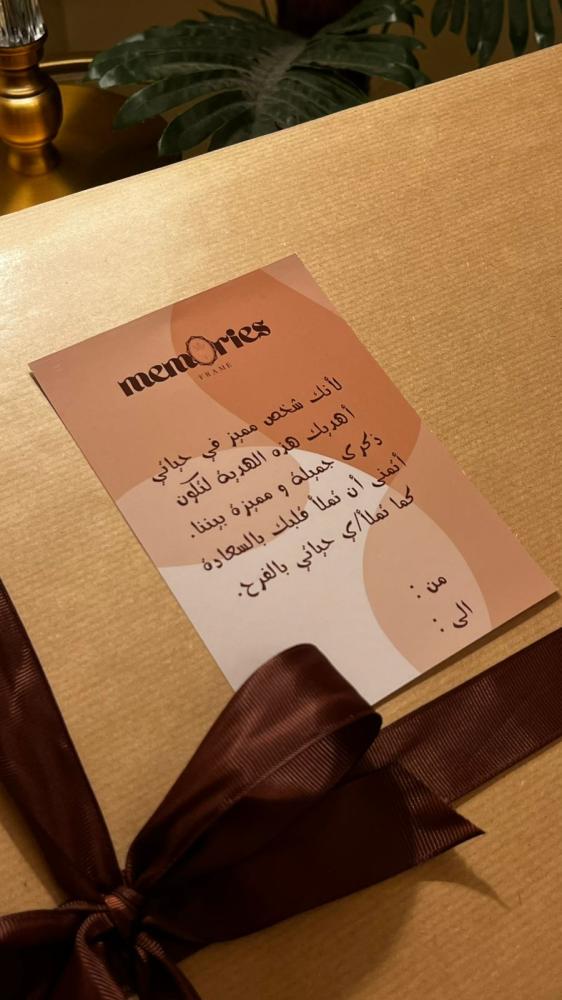 memories
FRAME
لأنك شخص مميز في حياتي
أهديك هذه الهدية لتكون
ذكرى جميلة و مميزة بيننا.
أتمنى أن تملأ قلبك بالسعادة
كما تملأ/ي حياتي بالفرح.
من :
الى :